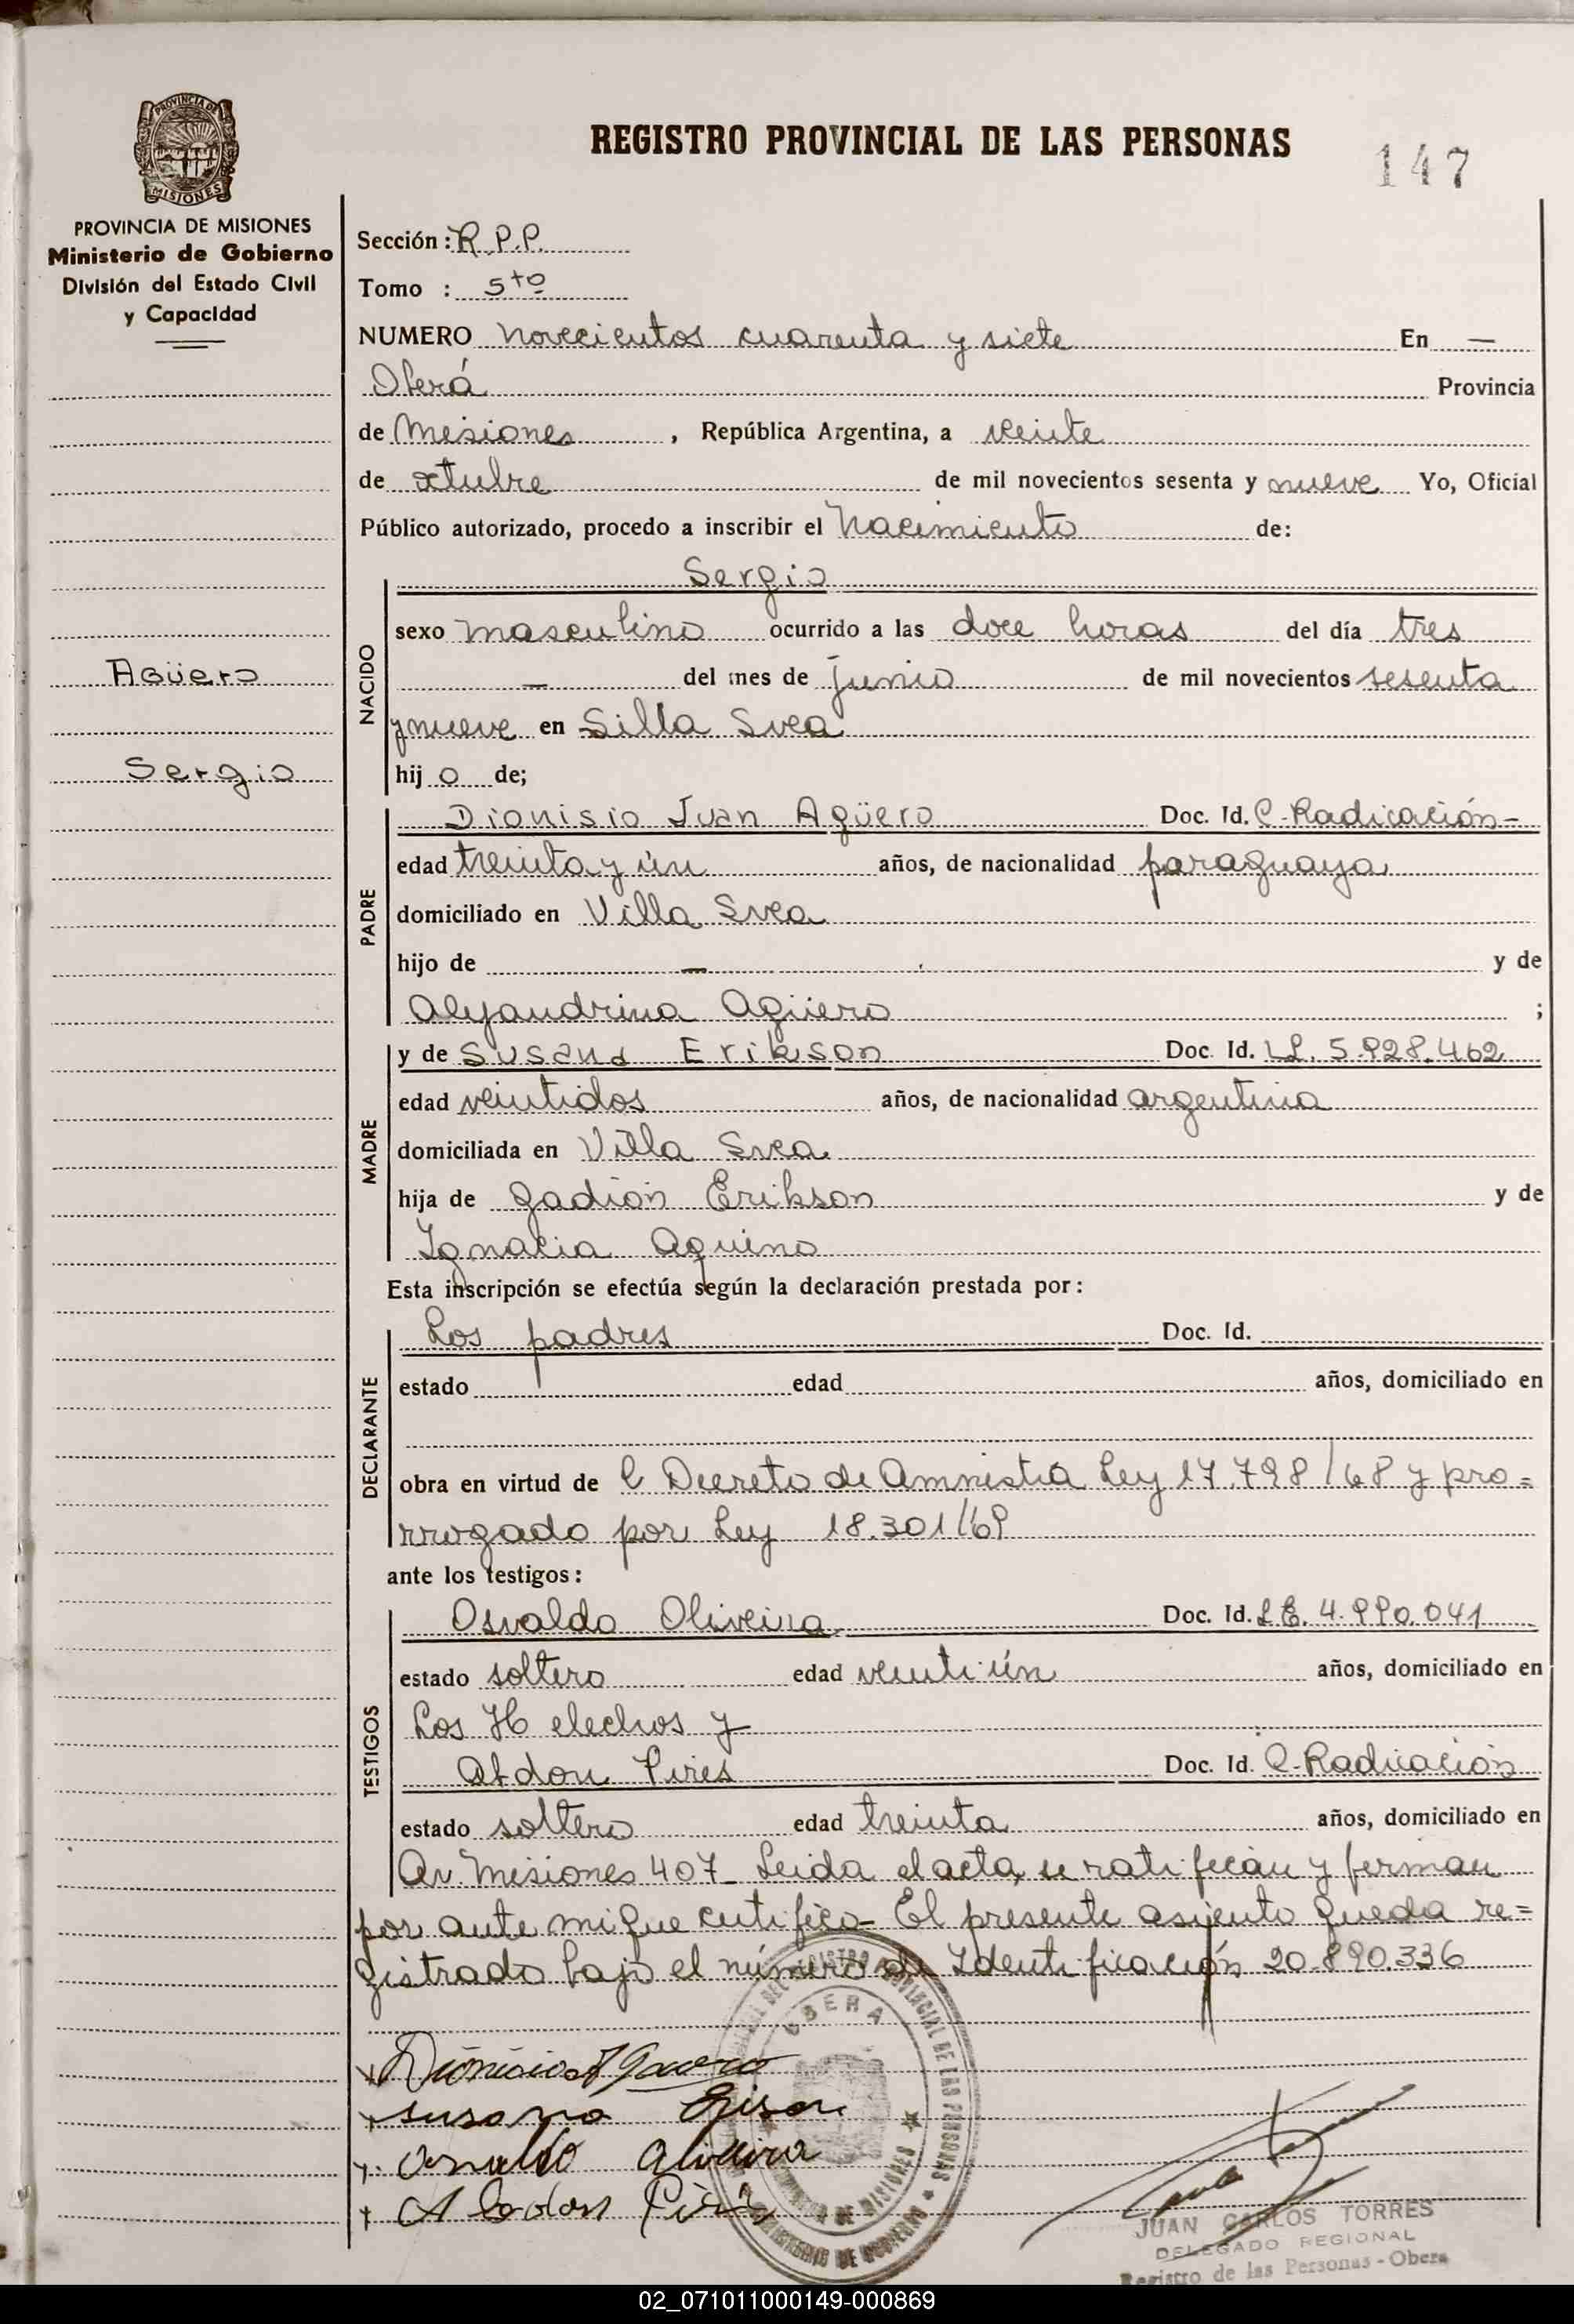 PROVINCIA DE
MISIONES
PROVINCIA DE MISIONES
Ministerio de Gobierno
División del Estado Civil
y Capacidad
REGISTRO PROVINCIAL DE LAS PERSONAS
147
Sección: R.P.P.
Tomo : 5to
NUMERO novecientos cuarenta y siete En —
Oberá Provincia
de Misiones, República Argentina, a veinte
de octubre de mil novecientos sesenta y nueve Yo, Oficial
Público autorizado, procedo a inscribir el Nacimiento de:
Sergio
NACIDO
sexo masculino ocurrido a las doce horas del día tres
— del mes de junio de mil novecientos sesenta
y nueve en Silla Svea
hij o de;
Agüero
Sergio
PADRE
Dionisio Juan Agüero Doc. Id. C-Radicación-
edad treinta y ún años, de nacionalidad paraguaya
domiciliado en Villa Svea
hijo de — y de
Alejandrina Agüero ;
MADRE
y de Susana Erikson Doc. Id. L.C. 5.928.462
edad veintidos años, de nacionalidad argentina
domiciliada en Villa Svea
hija de Gadión Erikson y de
Ignacia Aquino
Esta inscripción se efectúa según la declaración prestada por:
DECLARANTE
Los padres Doc. Id.
estado edad años, domiciliado en
obra en virtud de l Decreto de Amnistía Ley 17.798/68 y pro=
rrogado por Ley 18.301/69
ante los testigos:
TESTIGOS
Osvaldo Oliveira Doc. Id. L.E. 4.990.041
estado soltero edad veinti ún años, domiciliado en
Los Helechos y
Abdon Pires Doc. Id. C-Radicación
estado soltero edad treinta años, domiciliado en
Av. Misiones 407_ Leida el acta, se ratifican y firman
por ante mi que certifico- El presente asiento queda re=
gistrado bajo el número de Identificación 20.890.336
Dionicio Aguero
susana
osvaldo oliveira
Abdon Pires
OBERA
REGISTRO PROVINCIAL DE LAS PERSONAS
DE MISIONES
MINISTERIO DE GOBIERNO
JUAN CARLOS TORRES
DELEGADO REGIONAL
Registro de las Personas - Obera
02_071011000149-000869